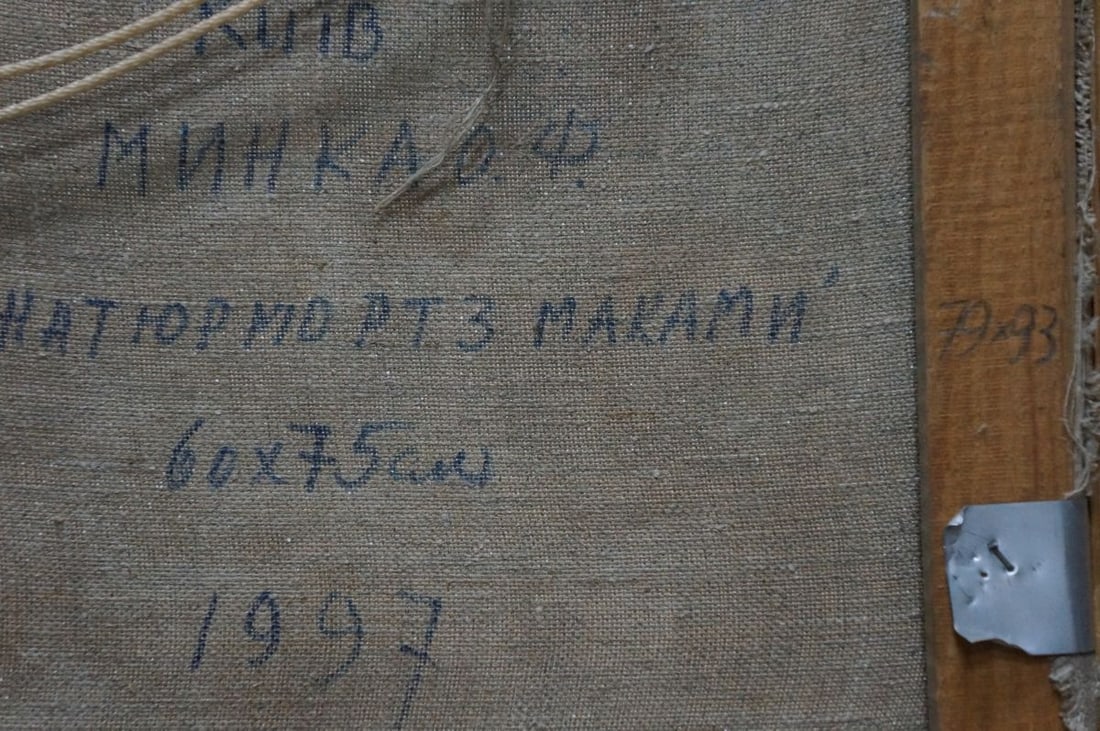 КИЇВ
МИНКА О. Ф.
НАТЮРМОРТ З МАКАМИ"
60х75см
1997
79х93